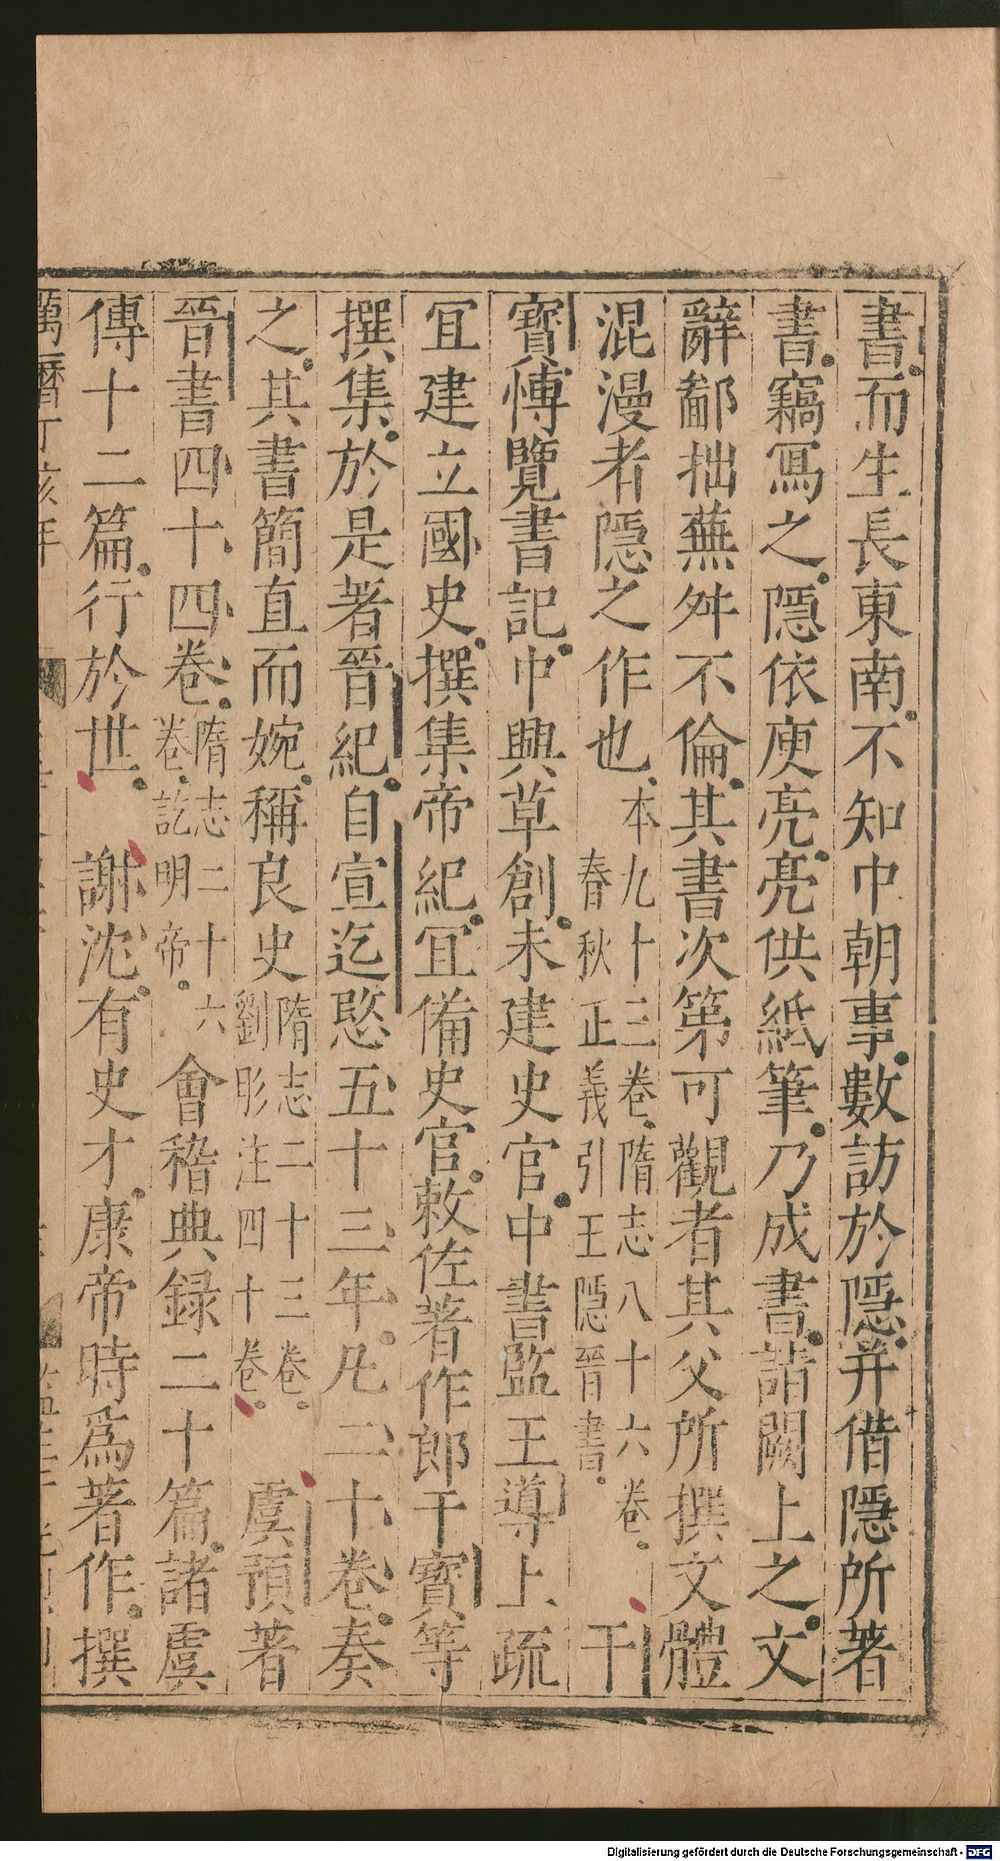 書而生長東南不知中朝事數訪於隱并借隱所著
書竊冩之隱依庾亮亮供紙筆乃成書詣闕上之文
辭鄙拙蕪舛不倫其書次第可觀者其父所撰文體
混漫者隱之作也本九十三卷隋志八十六卷春秋正義引王隱晉書干
寳愽覽書記中興草創未建史官中書監王導上疏
冝建立國史撰集帝紀冝備史官敕佐著作郎干寳等
撰集於是著晉紀自宣迄愍五十三年凡二十卷奏
之其書簡直而婉稱良史隋志二十三卷劉彤注四十卷虞預著
晉書四十四卷隋志二十六卷訖明帝會稽典録二十篇諸虞
傳十二篇行於世謝沈有史才康帝時爲著作撰
萬曆丁亥年
Digitalisierung gefördert durch die Deutsche Forschungsgemeinschaft - DFG